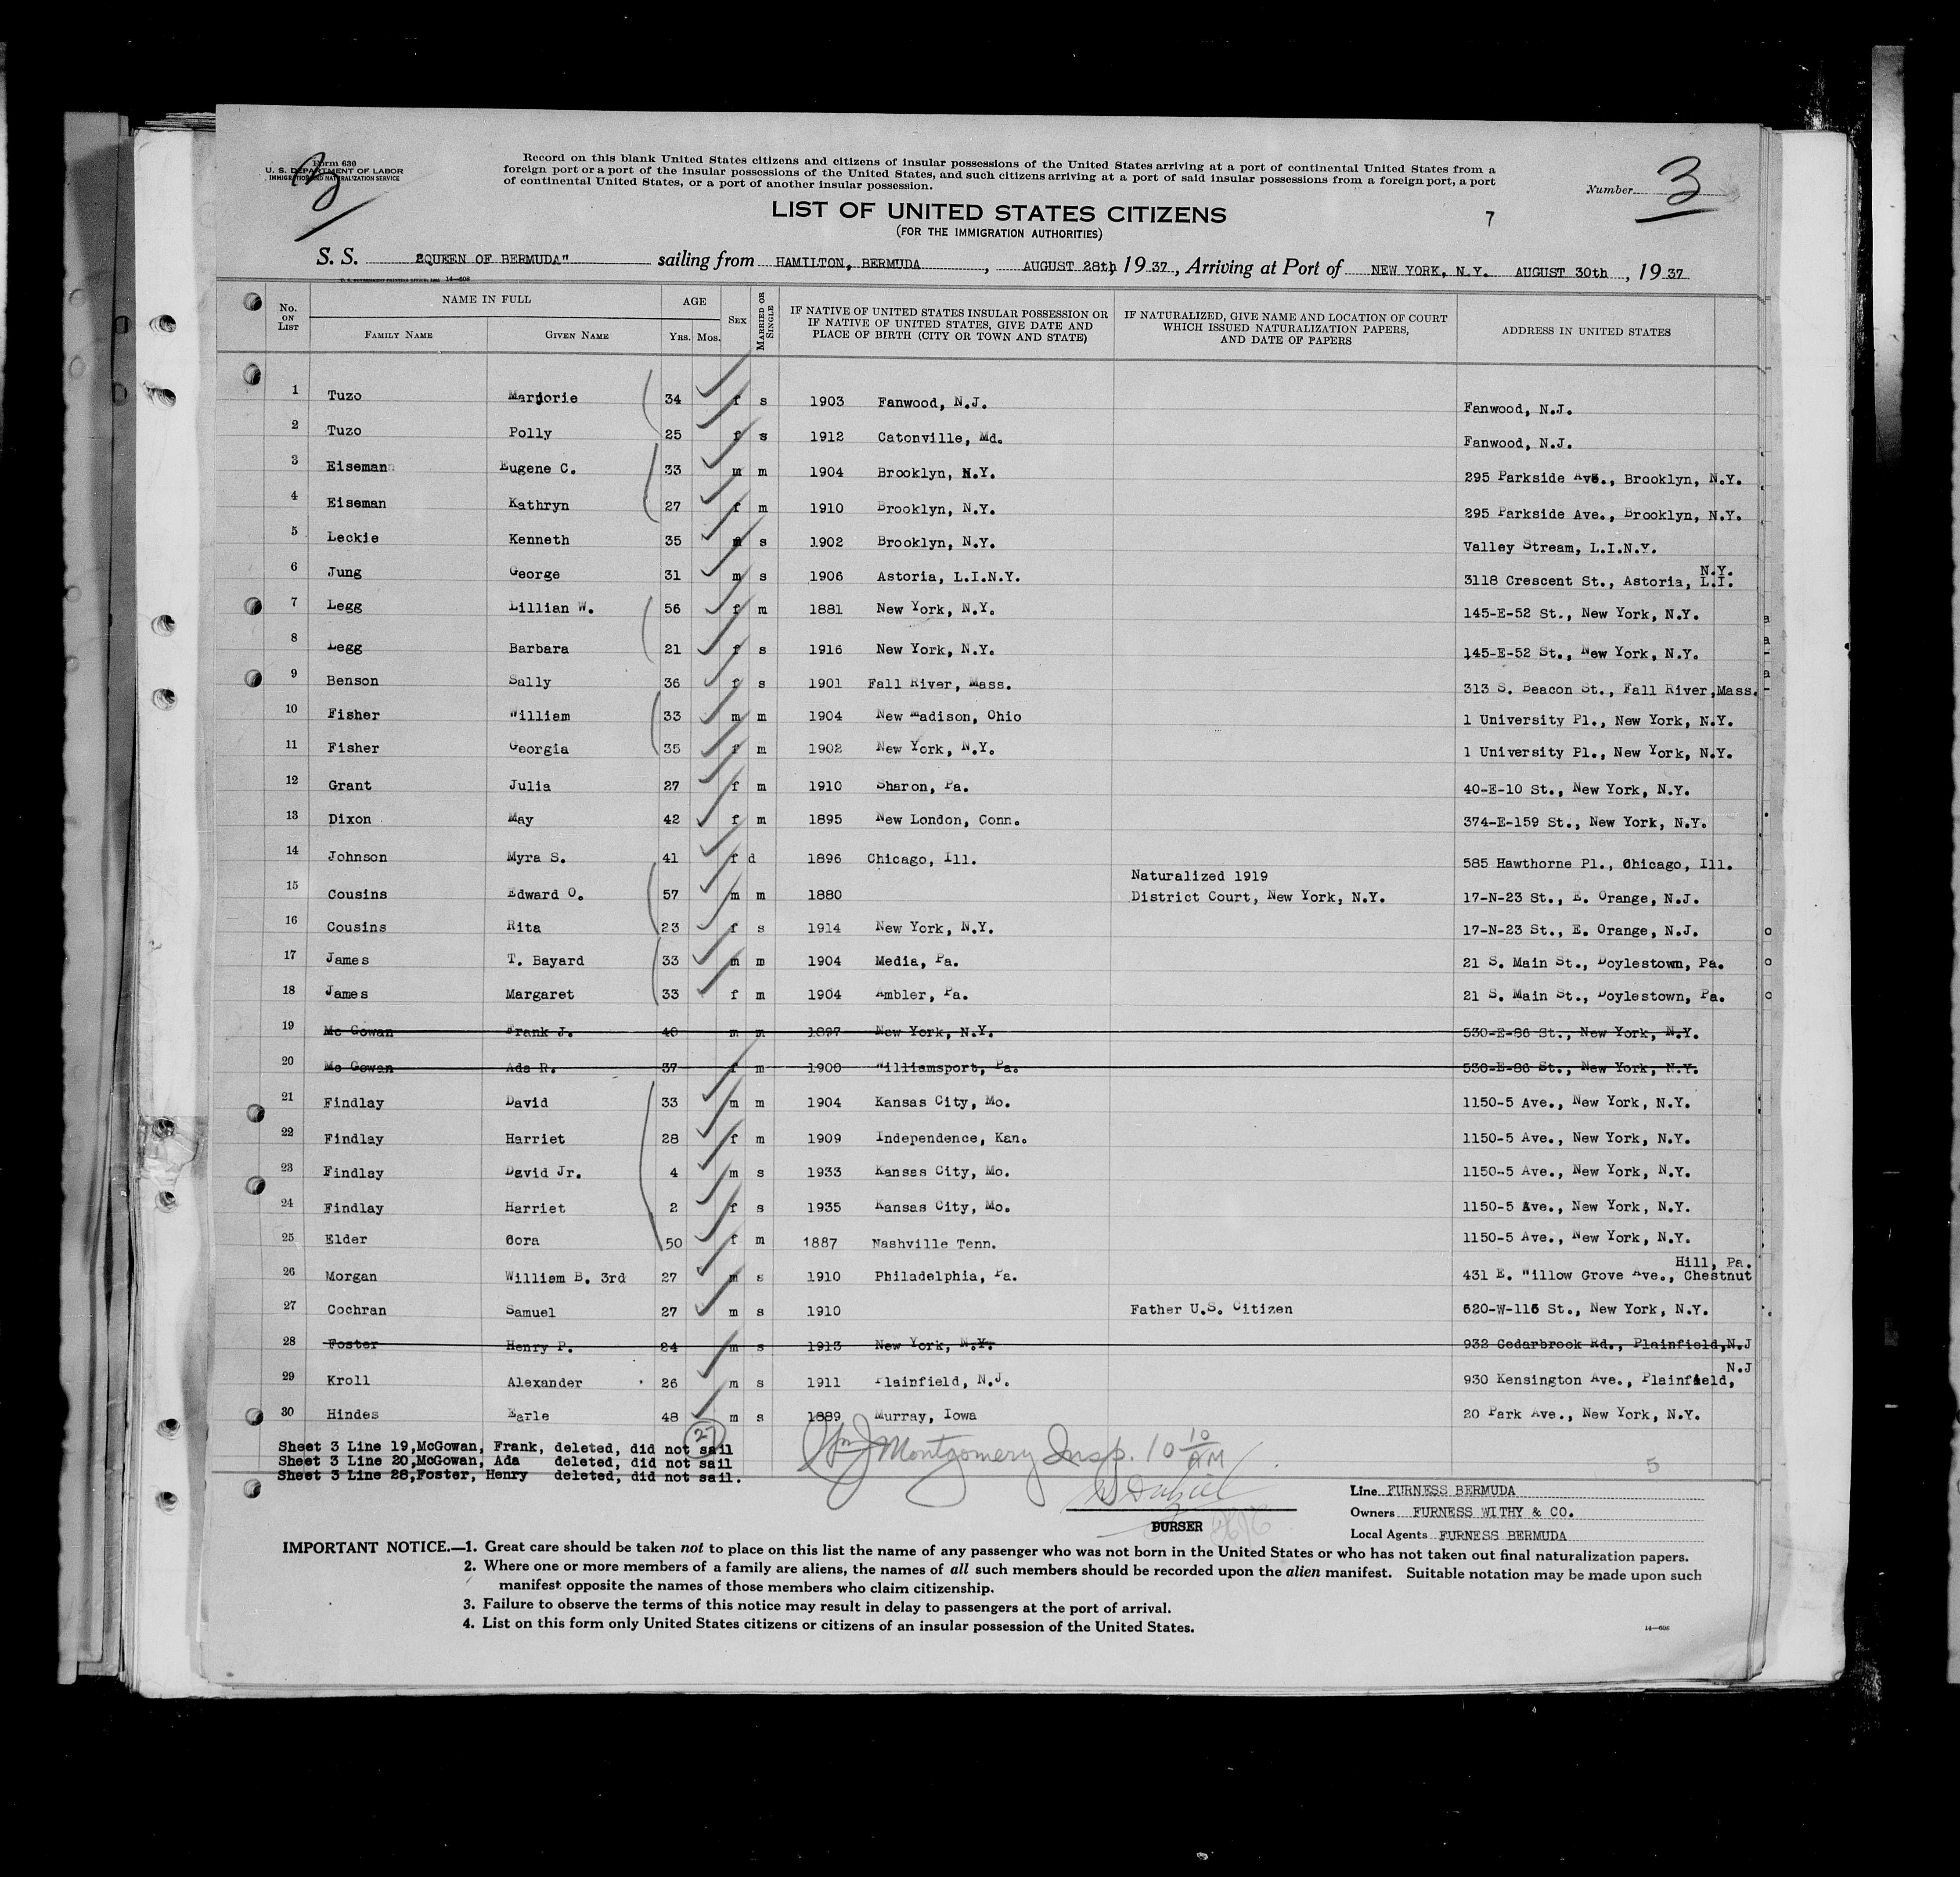 Form 630
U. S. DEPARTMENT OF LABOR
IMMIGRATION AND NATURALIZATION SERVICE
3
Record on this blank United States citizens and citizens of insular possessions of the United States arriving at a port of continental United States from a
foreign port or a port of the insular possessions of the United States, and such citizens arriving at a port of said insular possessions from a foreign port, a port
of continental United States, or a port of another insular possession.
Number 3
LIST OF UNITED STATES CITIZENS
7
(FOR THE IMMIGRATION AUTHORITIES)
S. S. QUEEN OF BERMUDA" sailing from HAMILTON, BERMUDA, AUGUST 28th 1937, Arriving at Port of NEW YORK, N.Y. AUGUST 30th, 1937
No. ON LIST NAME IN FULL FAMILY NAME GIVEN NAME AGE YRS. MOS. SEX MARRIED OR SINGLE IF NATIVE OF UNITED STATES INSULAR POSSESSION OR IF NATIVE OF UNITED STATES, GIVE DATE AND PLACE OF BIRTH (CITY OR TOWN AND STATE) IF NATURALIZED, GIVE NAME AND LOCATION OF COURT WHICH ISSUED NATURALIZATION PAPERS, AND DATE OF PAPERS ADDRESS IN UNITED STATES
1 Tuzo Marjorie 34 f s 1903 Fanwood, N.J. Fanwood, N.J.
2 Tuzo Polly 25 f s 1912 Catonville, Md. Fanwood, N.J.
3 Eiseman Eugene C. 33 m m 1904 Brooklyn, N.Y. 295 Parkside Ave., Brooklyn, N.Y.
4 Eiseman Kathryn 27 f m 1910 Brooklyn, N.Y. 295 Parkside Ave., Brooklyn, N.Y.
5 Leckie Kenneth 35 m s 1902 Brooklyn, N.Y. Valley Stream, L.I.N.Y.
6 Jung George 31 m s 1906 Astoria, L.I.N.Y. 3118 Crescent St., Astoria, L.I. N.Y.
7 Legg Lillian W. 56 f m 1881 New York, N.Y. 145-E-52 St., New York, N.Y.
8 Legg Barbara 21 f s 1916 New York, N.Y. 145-E-52 St., New York, N.Y.
9 Benson Sally 36 f s 1901 Fall River, Mass. 313 S. Beacon St., Fall River, Mass.
10 Fisher William 33 m m 1904 New Madison, Ohio 1 University Pl., New York, N.Y.
11 Fisher Georgia 35 f m 1902 New York, N.Y. 1 University Pl., New York, N.Y.
12 Grant Julia 27 f m 1910 Sharon, Pa. 40-E-10 St., New York, N.Y.
13 Dixon May 42 f m 1895 New London, Conn. 374-E-159 St., New York, N.Y.
14 Johnson Myra S. 41 f d 1896 Chicago, Ill. 585 Hawthorne Pl., Chicago, Ill.
15 Cousins Edward O. 57 m m 1880 Naturalized 1919 District Court, New York, N.Y. 17-N-23 St., E. Orange, N.J.
16 Cousins Rita 23 f s 1914 New York, N.Y. 17-N-23 St., E. Orange, N.J.
17 James T. Bayard 33 m m 1904 Media, Pa. 21 S. Main St., Doylestown, Pa.
18 James Margaret 33 f m 1904 Ambler, Pa. 21 S. Main St., Doylestown, Pa.
19 Mc Gowan Frank J. 40 m m 1897 New York, N.Y. 530-E-86 St., New York, N.Y.
20 Mc Gowan Ada R. 37 f m 1900 Williamsport, Pa. 530-E-86 St., New York, N.Y.
21 Findlay David 33 m m 1904 Kansas City, Mo. 1150-5 Ave., New York, N.Y.
22 Findlay Harriet 28 f m 1909 Independence, Kan. 1150-5 Ave., New York, N.Y.
23 Findlay David Jr. 4 m s 1933 Kansas City, Mo. 1150-5 Ave., New York, N.Y.
24 Findlay Harriet 2 f s 1935 Kansas City, Mo. 1150-5 Ave., New York, N.Y.
25 Elder Cora 50 f m 1887 Nashville Tenn. 1150-5 Ave., New York, N.Y.
26 Morgan William B. 3rd 27 m s 1910 Philadelphia, Pa. 431 E. Willow Grove Ave., Chestnut Hill, Pa.
27 Cochran Samuel 27 m s 1910 Father U.S. Citizen 620-W-116 St., New York, N.Y.
28 Foster Henry P. 24 m s 1913 New York, N.Y. 932 Cedarbrook Rd., Plainfield, N.J
29 Kroll Alexander 26 m s 1911 Plainfield, N.J. 930 Kensington Ave., Plainfield, N.J
30 Hindes Earle 48 m s 1889 Murray, Iowa 20 Park Ave., New York, N.Y.
27
Sheet 3 Line 19, McGowan, Frank, deleted, did not sail
Sheet 3 Line 20, McGowan, Ada deleted, did not sail
Sheet 3 Line 28, Foster, Henry deleted, did not sail.
Montgomery Insp. 10 10 AM
5
PURSER
Line FURNESS BERMUDA
Owners FURNESS WITHY & CO.
Local Agents FURNESS BERMUDA
IMPORTANT NOTICE.—1. Great care should be taken not to place on this list the name of any passenger who was not born in the United States or who has not taken out final naturalization papers.
2. Where one or more members of a family are aliens, the names of all such members should be recorded upon the alien manifest. Suitable notation may be made upon such
manifest opposite the names of those members who claim citizenship.
3. Failure to observe the terms of this notice may result in delay to passengers at the port of arrival.
4. List on this form only United States citizens or citizens of an insular possession of the United States.
14—608